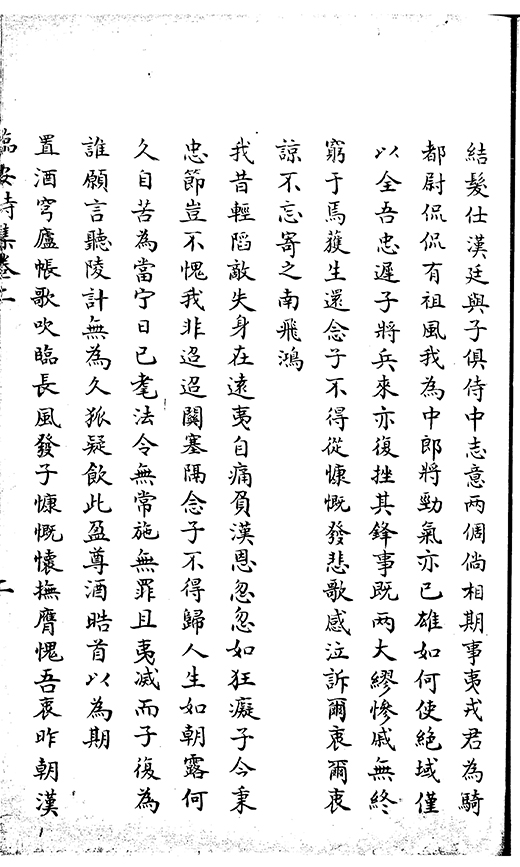 結髮仕漢廷與子俱侍中志意兩倜倘相期事夷戎君為騎
都尉侃侃有祖風我為中郎將勁氣亦已雄如何使絶域僅
以全吾忠遲子將兵來亦復挫其鋒事既兩大繆慘戚無終
窮于焉獲生還念子不得從慷慨發悲歌感泣訴爾衷爾衷
諒不忘寄之南飛鴻
我昔輕蹈敵失身在遠夷自痛負漢恩忽忽如狂癡子今秉
忠節豈不愧我非迢迢關塞隔念子不得歸人生如朝露何
久自苦為當宁日已耄法令無常施無罪且夷滅而子復為
誰願言聽陵計無為久狐疑飲此盈尊酒皓首以為期
置酒穹廬帳歌吹臨長風發子慷慨懷撫膺愧吾衷昨朝漢
臨安詩集卷二
二